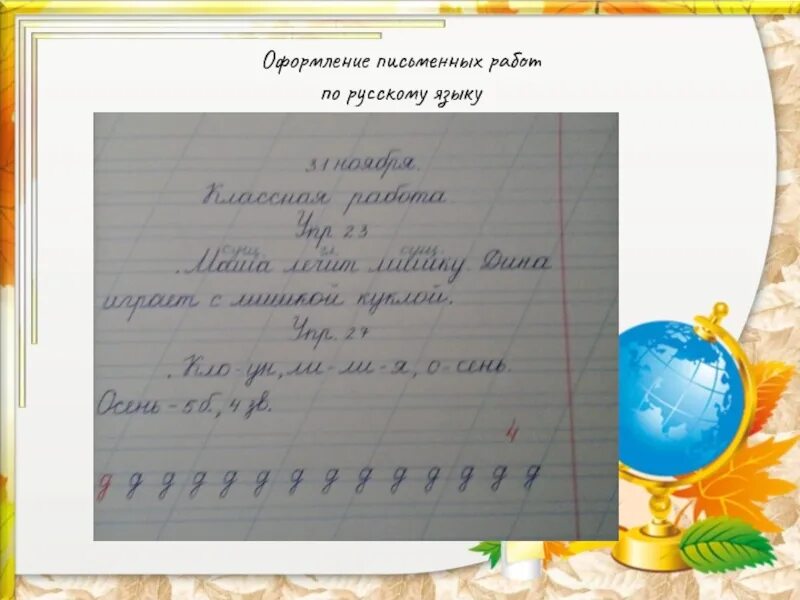 Оформление письменных работ
по русскому языку
31 ноября.
Классная работа.
Упр 23
сущ. гл. сущ.
Маша лечит мишку. Дина
играет с мишкой куклой.
Упр. 27
Кло-ун, ли-ли-я, о-сень.
Осень - 5 б., 4 зв.
4
д д д д д д д д д д д д д д